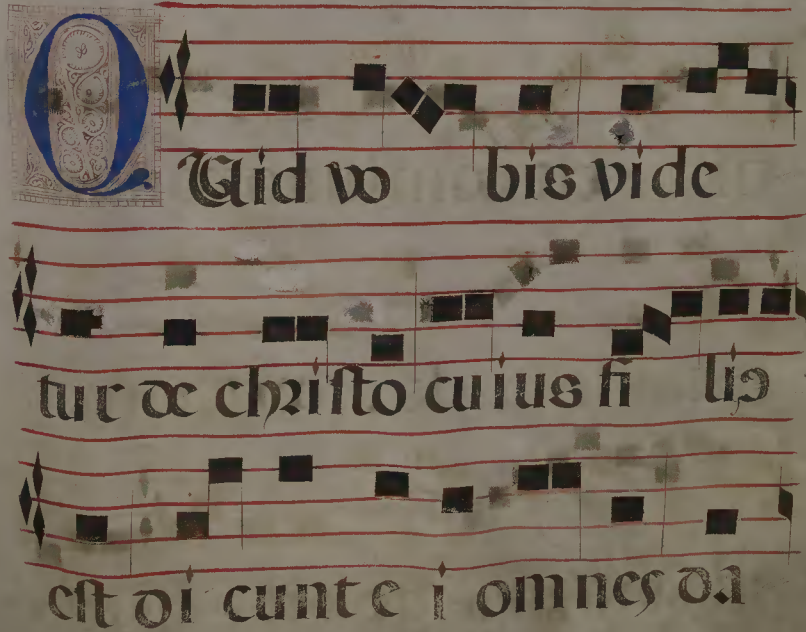 QUid vo bis vide
tur de christo cuius fi liꝯ
est di cunt e i omnes da